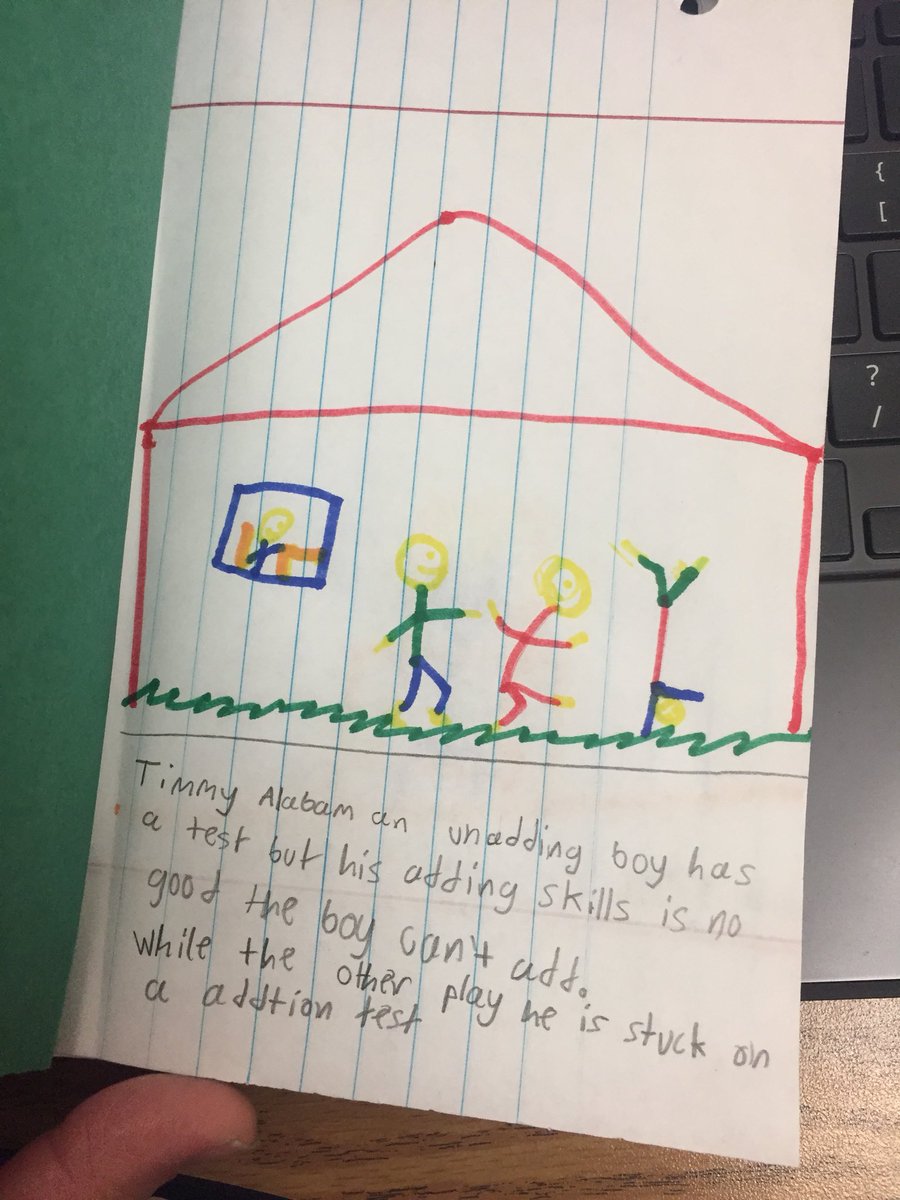 Timmy Alabam an unadding boy has
a test but his adding skills is no
good the boy can't add.
while the other play he is stuck on
a addtion test
{
[
?
/